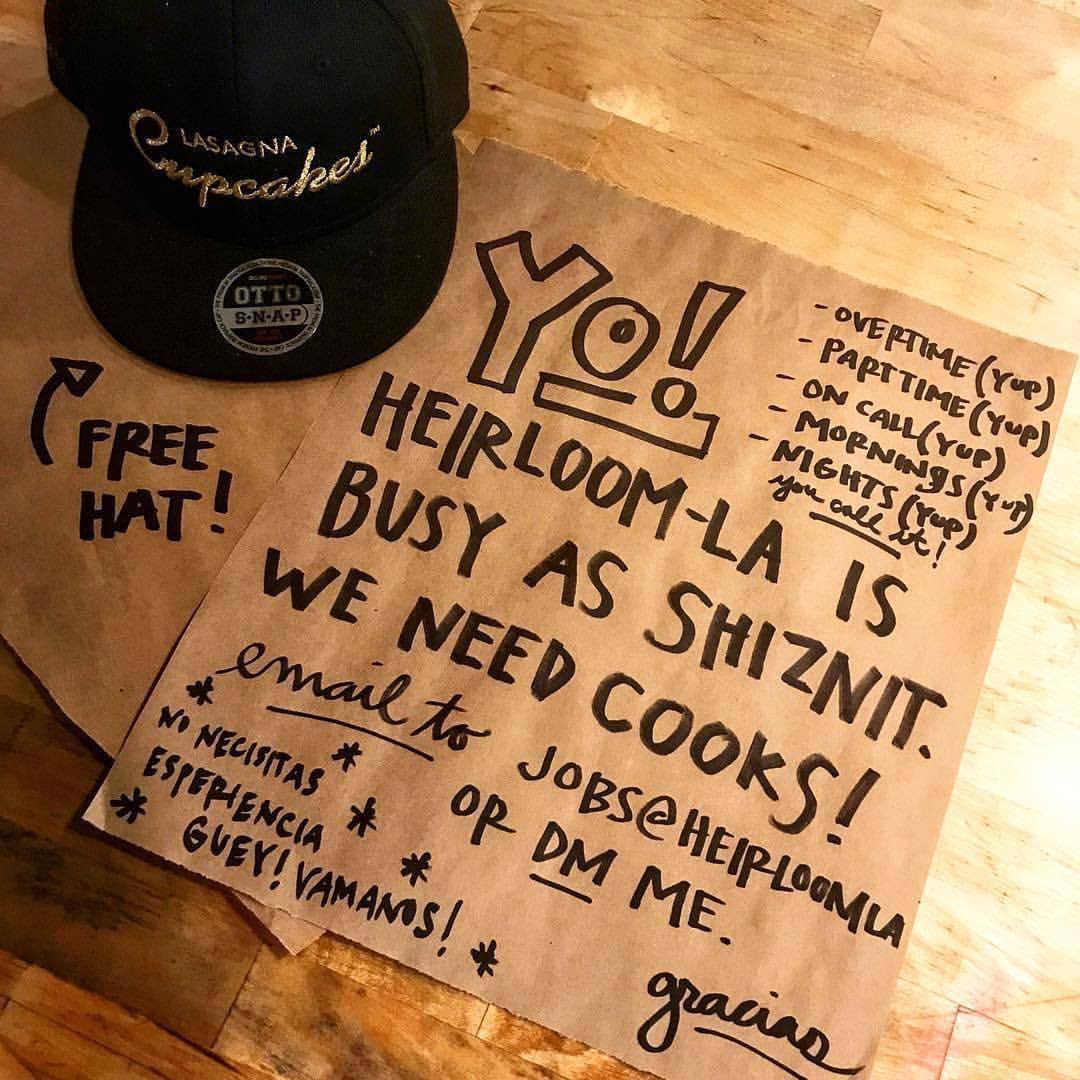 LASAGNA
Cupcakes™
OTTO
S·N·A·P
FREE
HAT!
YO!
- OVERTIME (YUP)
- PARTTIME (YUP)
- ON CALL (YUP)
- MORNINGS (YUP)
- NIGHTS (YUP)
you call it!
HEIRLOOM-LA IS
BUSY AS SHIZNIT.
WE NEED COOKS!
email to
JOBS@HEIRLOOMLA
OR DM ME.
* NO NECISITAS *
ESPERIENCIA *
* GUEY! VAMANOS! *
gracias